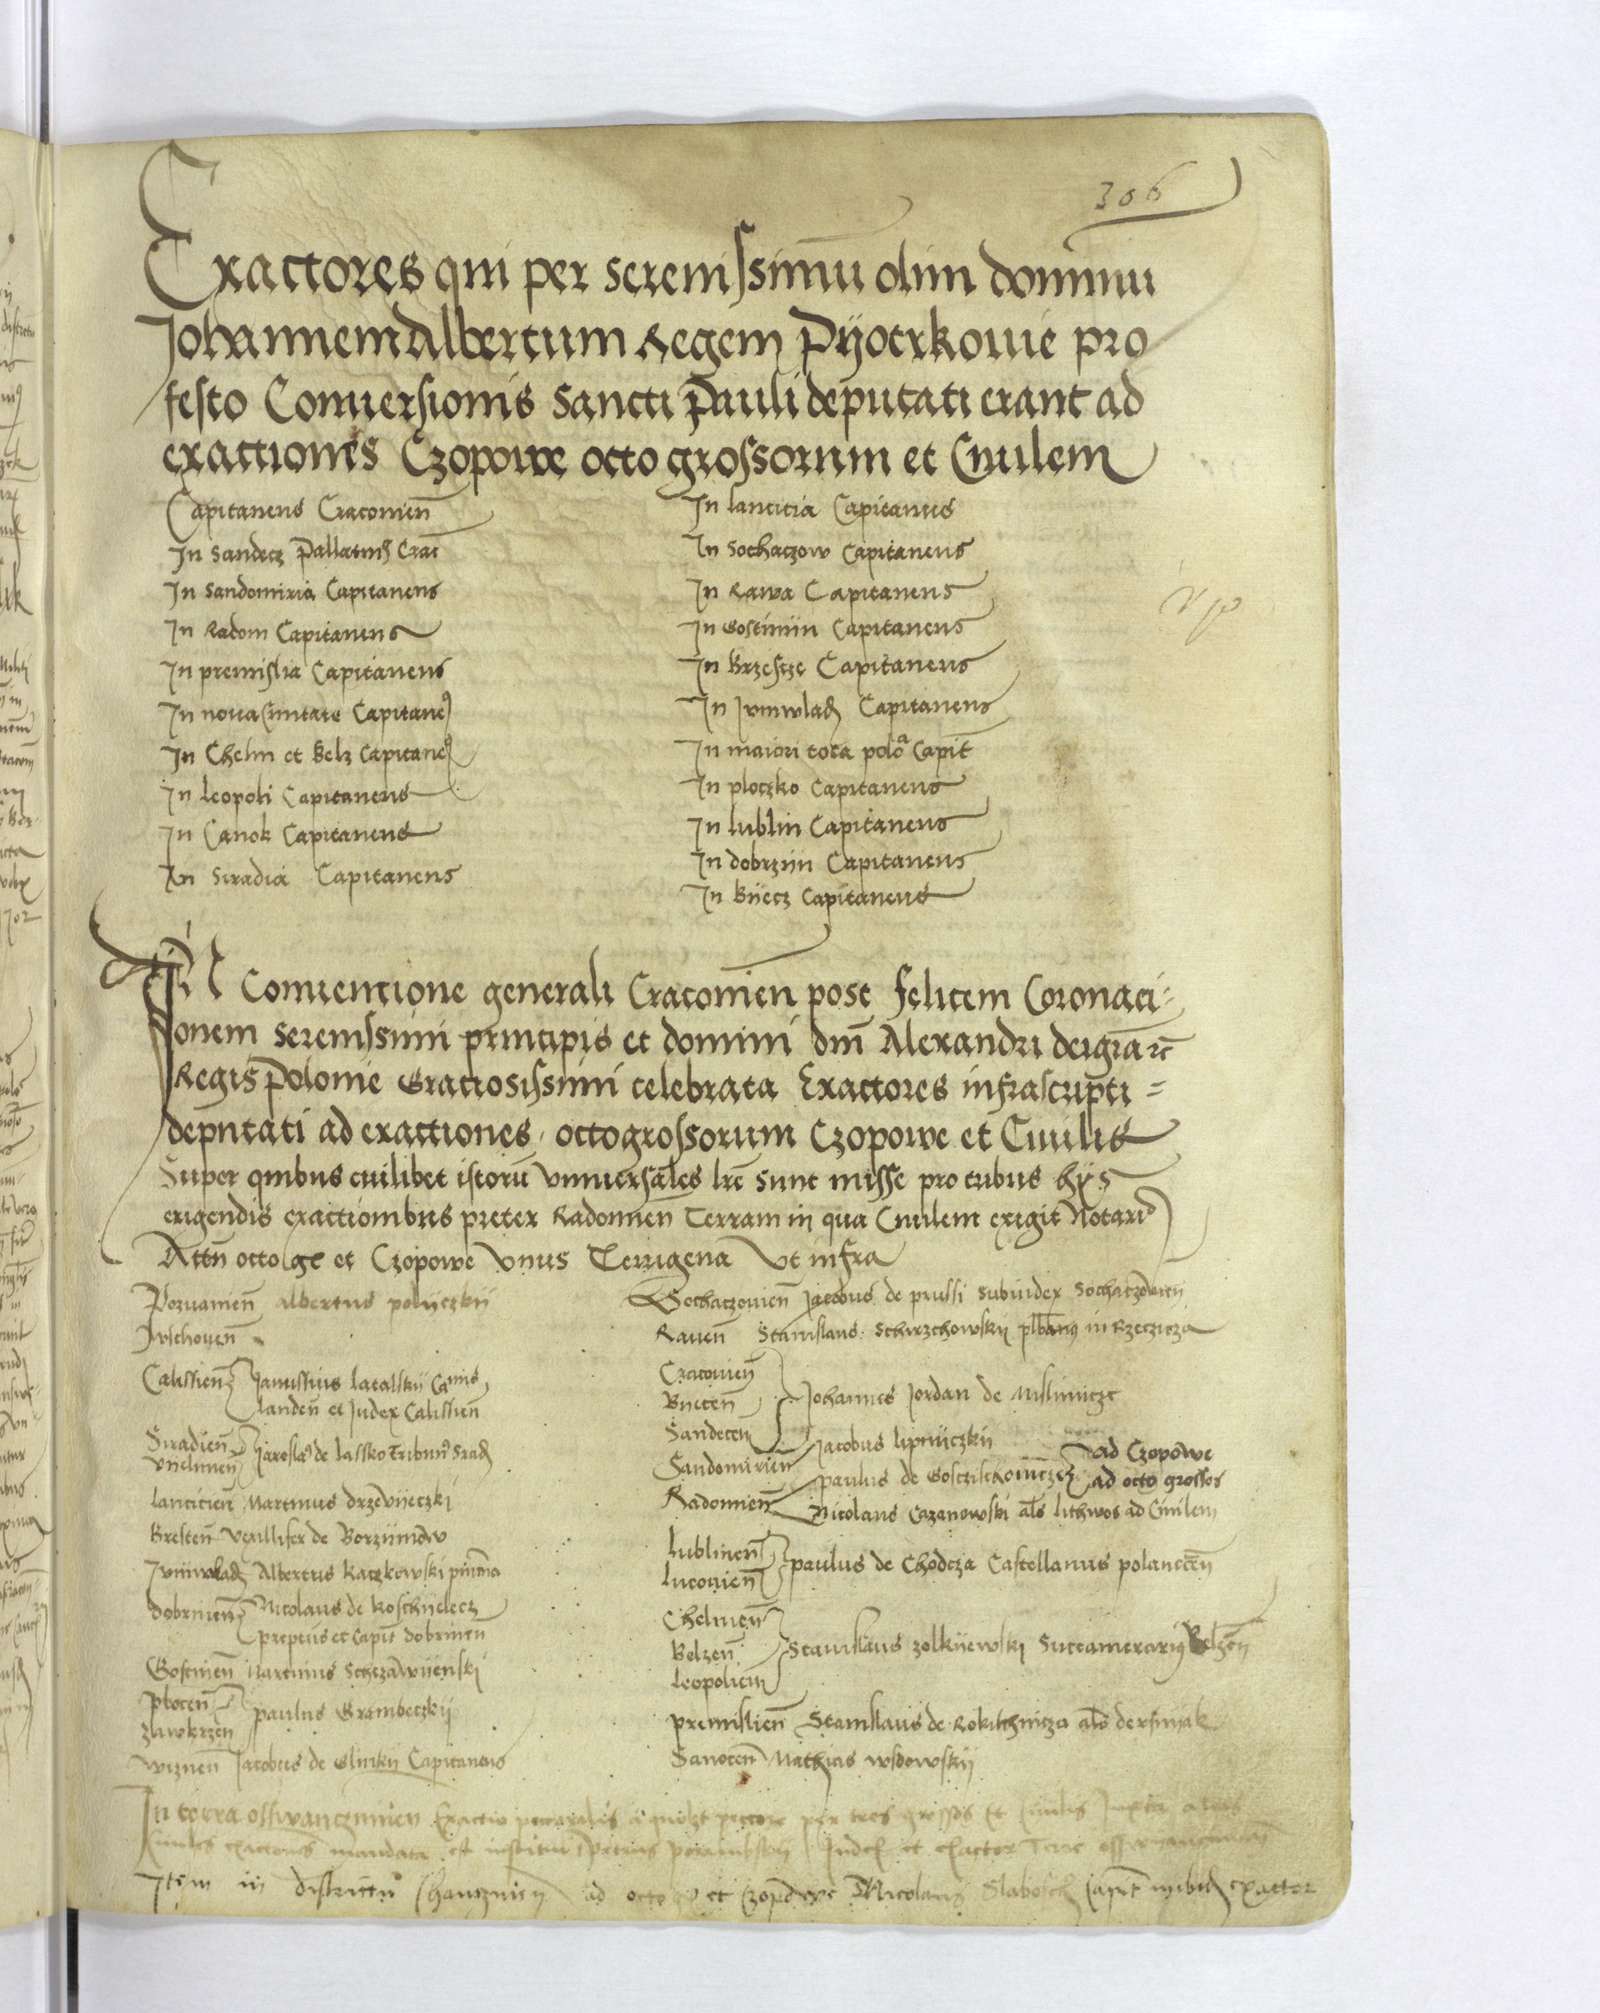 306
Exactores qui per serenissimū olim dominū
Johannem Albertum Regem Pyotrkouie pro
festo Conuersionis Sancti Pauli deputati erant ad
exactiones Czopowe octo grossorum et Ciuilem
Capitaneus Cracouieñ
In Sandecz Pallatinus Crac̄
In Sandomiria Capitaneus
In Radom Capitaneus
In premislia Capitaneus
In noua Ciuitate Capitane9
In Chelm et Belz Capitane9
In leopoli Capitaneus
In Sanok Capitaneus
In Siradia Capitaneus
In lancicia Capitaneus
In Sochaczow Capitaneus
In Rawa Capitaneus
In Gostinin Capitaneus
In Brzescze Capitaneus
In Juniwladz Capitaneus
In maiori tota poloa Capit̄
In ploczko Capitaneus
In lublin Capitaneus
In dobrzin Capitaneus
In Byecz Capitaneus
IN Conuencione generali Cracouień post felicem Coronaci=
onem serenissimi principis et domini dnī Alexandri dei grā rc̄
Regis Polonie Graciosissimi celebrata Exactores infrascripti=
deputati ad exactiones octo grossorum Czopowe et Ciuilis
Super quibus cuilibet istorū vniuersales lrē sunt misse pro tubus hys
exigendis exactionibus preter Radomień Terram in qua Ciuilem exigit Notari9
Atteñ octo gr et Czopowe vnus Terrigena vt infra
Poznanieñ Albertus ponyczkij
Wschoueñ
Calissieñ Janussius latalskij Ca
landeñ et Judex Calissieñ
Siradieñ
vneluneñ Jarosla9 de lassko Tribun9 Sirad
lancicieñ Martinus drzewyeczki
Bresteñ vexillifer de Borzimow
Juniwladz Albertus Kaczkowski
dobrinieñ Nicolaus de Koschyelecz
prept̄us et Capit̄ dobrineñ
Gostineñ Martinus Schczawijenski
ploceñ
zawkrzeñ paulus Grambeczkij
wizneñ Jacobus de Glinkij Capitaneus
Sochaczouieñ Jacobus de prussi Subiudex Sochaczowieñ
Raueñ Stanislaus plban9 in Rzeczicza
Cracouieñ
Byeceñ
Sandeceñ Johannes Jordan de
Sandomirieñ Jacobus lipniczkij
Radomieñ paulus de ad Czopowe
ad octo grossos
Nicolaus Cazanowski als lithwos ad Ciuilem
Lublineñ
lucouieñ paulus de Chodcza Castellanus polaneceñ
Chelmeñ
Belzeñ Stanislaus zolkijewski Succamerari9 Belzeñ
leopolieñ
premislieñ Stanislaus de Rokithnicza als dersnijak
Sanoceñ Mathias wsdowskij
In terra osswanczimieñ Exactio pecoralis a quolibet pecore per tres grossos Et Ciuilis Juxta alias
mandata est Petrus porambskij Judex et exactor Terre
Item in districtu ad octo gr et Czopowe Nicolaus Capit̄ exactor